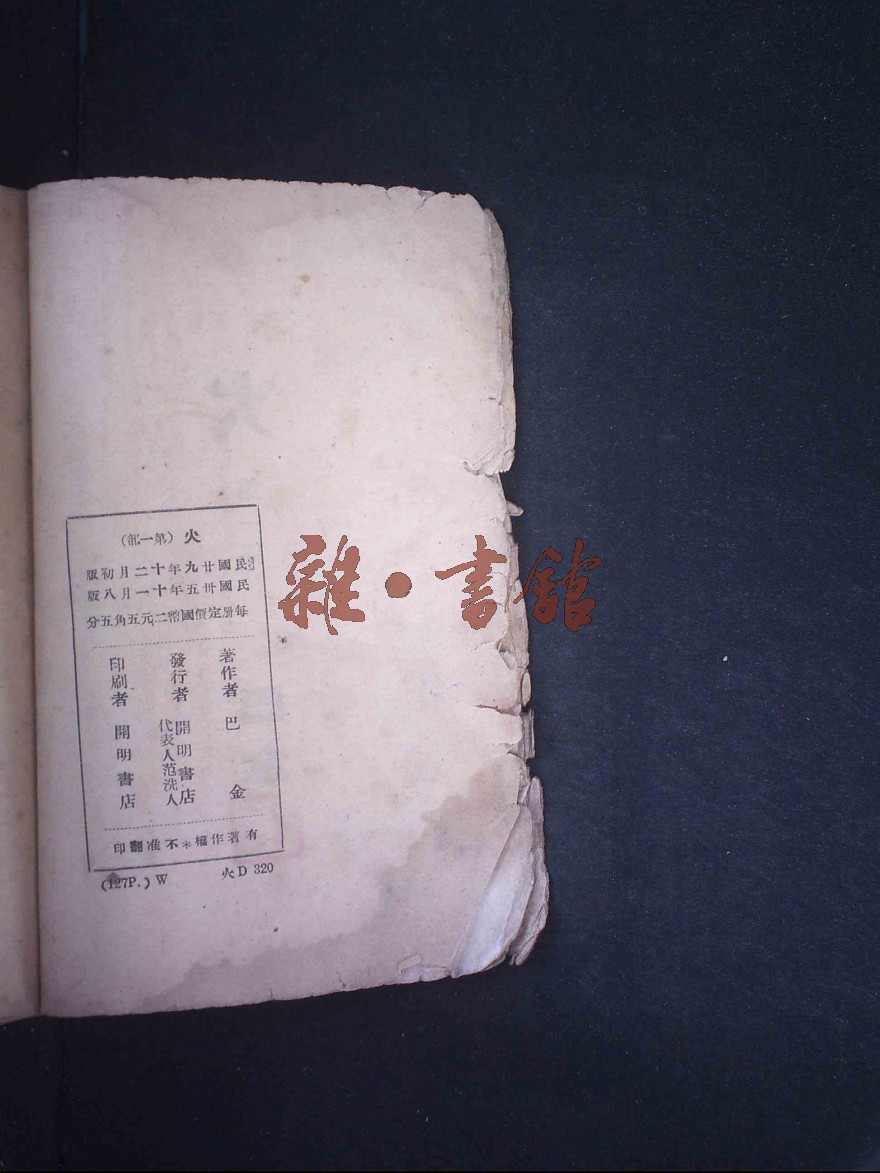 火（第一部）
民國廿九年十二月初版
民國卅五年十一月八版
每册定價國幣二元五角五分
著作者 巴金
發行者 開明書店
代表人范洗人
印刷者 開明書店
有著作權＊不准翻印
(127P.) W 火 D 320
雜・書館